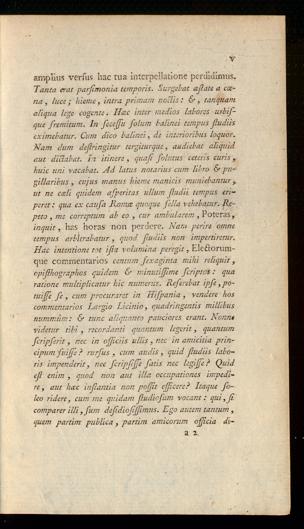 v
amplius versus hac tua interpellatione perdidimus.
Tanta erat parsimonia temporis. Surgebat æstate a cœ-
na, luce; hieme, intra primam noctis: &, tanquam
aliqua lege cogente. Hæc inter medios labores urbis-
que fremitum. In secessu solum balinei tempus studiis
eximebatur. Cum dico balinei, de interioribus loquor.
Nam dum destringitur tergiturque, audiebat aliquid
aut dictabat. In itinere, quasi solutus ceteris curis,
huic uni vacabat. Ad latus notarius cum libro & pu-
gillaribus, cujus manus hieme manicis muniebantur,
ut ne cæli quidem asperitas ullum studii tempus eri-
peret: qua ex causa Romæ quoque sella vehebatur. Re-
peto, me correptum ab eo, cur ambularem, Poteras,
inquit, has horas non perdere. Nam perire omne
tempus arbitrabatur, quod studiis non impertiretur.
Hac intentione tot ista volumina peregit, Electorum-
que commentarios centum sexaginta mihi reliquit,
opisthographos quidem & minutissime scriptos: qua
ratione multiplicatur hic numerus. Referebat ipse, po-
tuisse se, cum procuraret in Hispania, vendere hos
commentarios Largio Licinio, quadringentis millibus
nummûm: & tunc aliquanto pauciores erant. Nonne
videtur tibi, recordanti quantum legerit, quantum
scripserit, nec in officiis ullis, nec in amicitia prin-
cipum fuisse? rursus, cum audis, quid studiis labo-
ris impenderit, nec scripsisse satis nec legisse? Quid
est enim, quod non aut illæ occupationes impedi-
re, aut hæc instantia non possit efficere? Itaque so-
leo ridere, cum me quidam studiosum vocant: qui, si
comparer illi, sum desidiosissimus. Ego autem tantum,
quem partim publica, partim amicorum officia di-
a 2